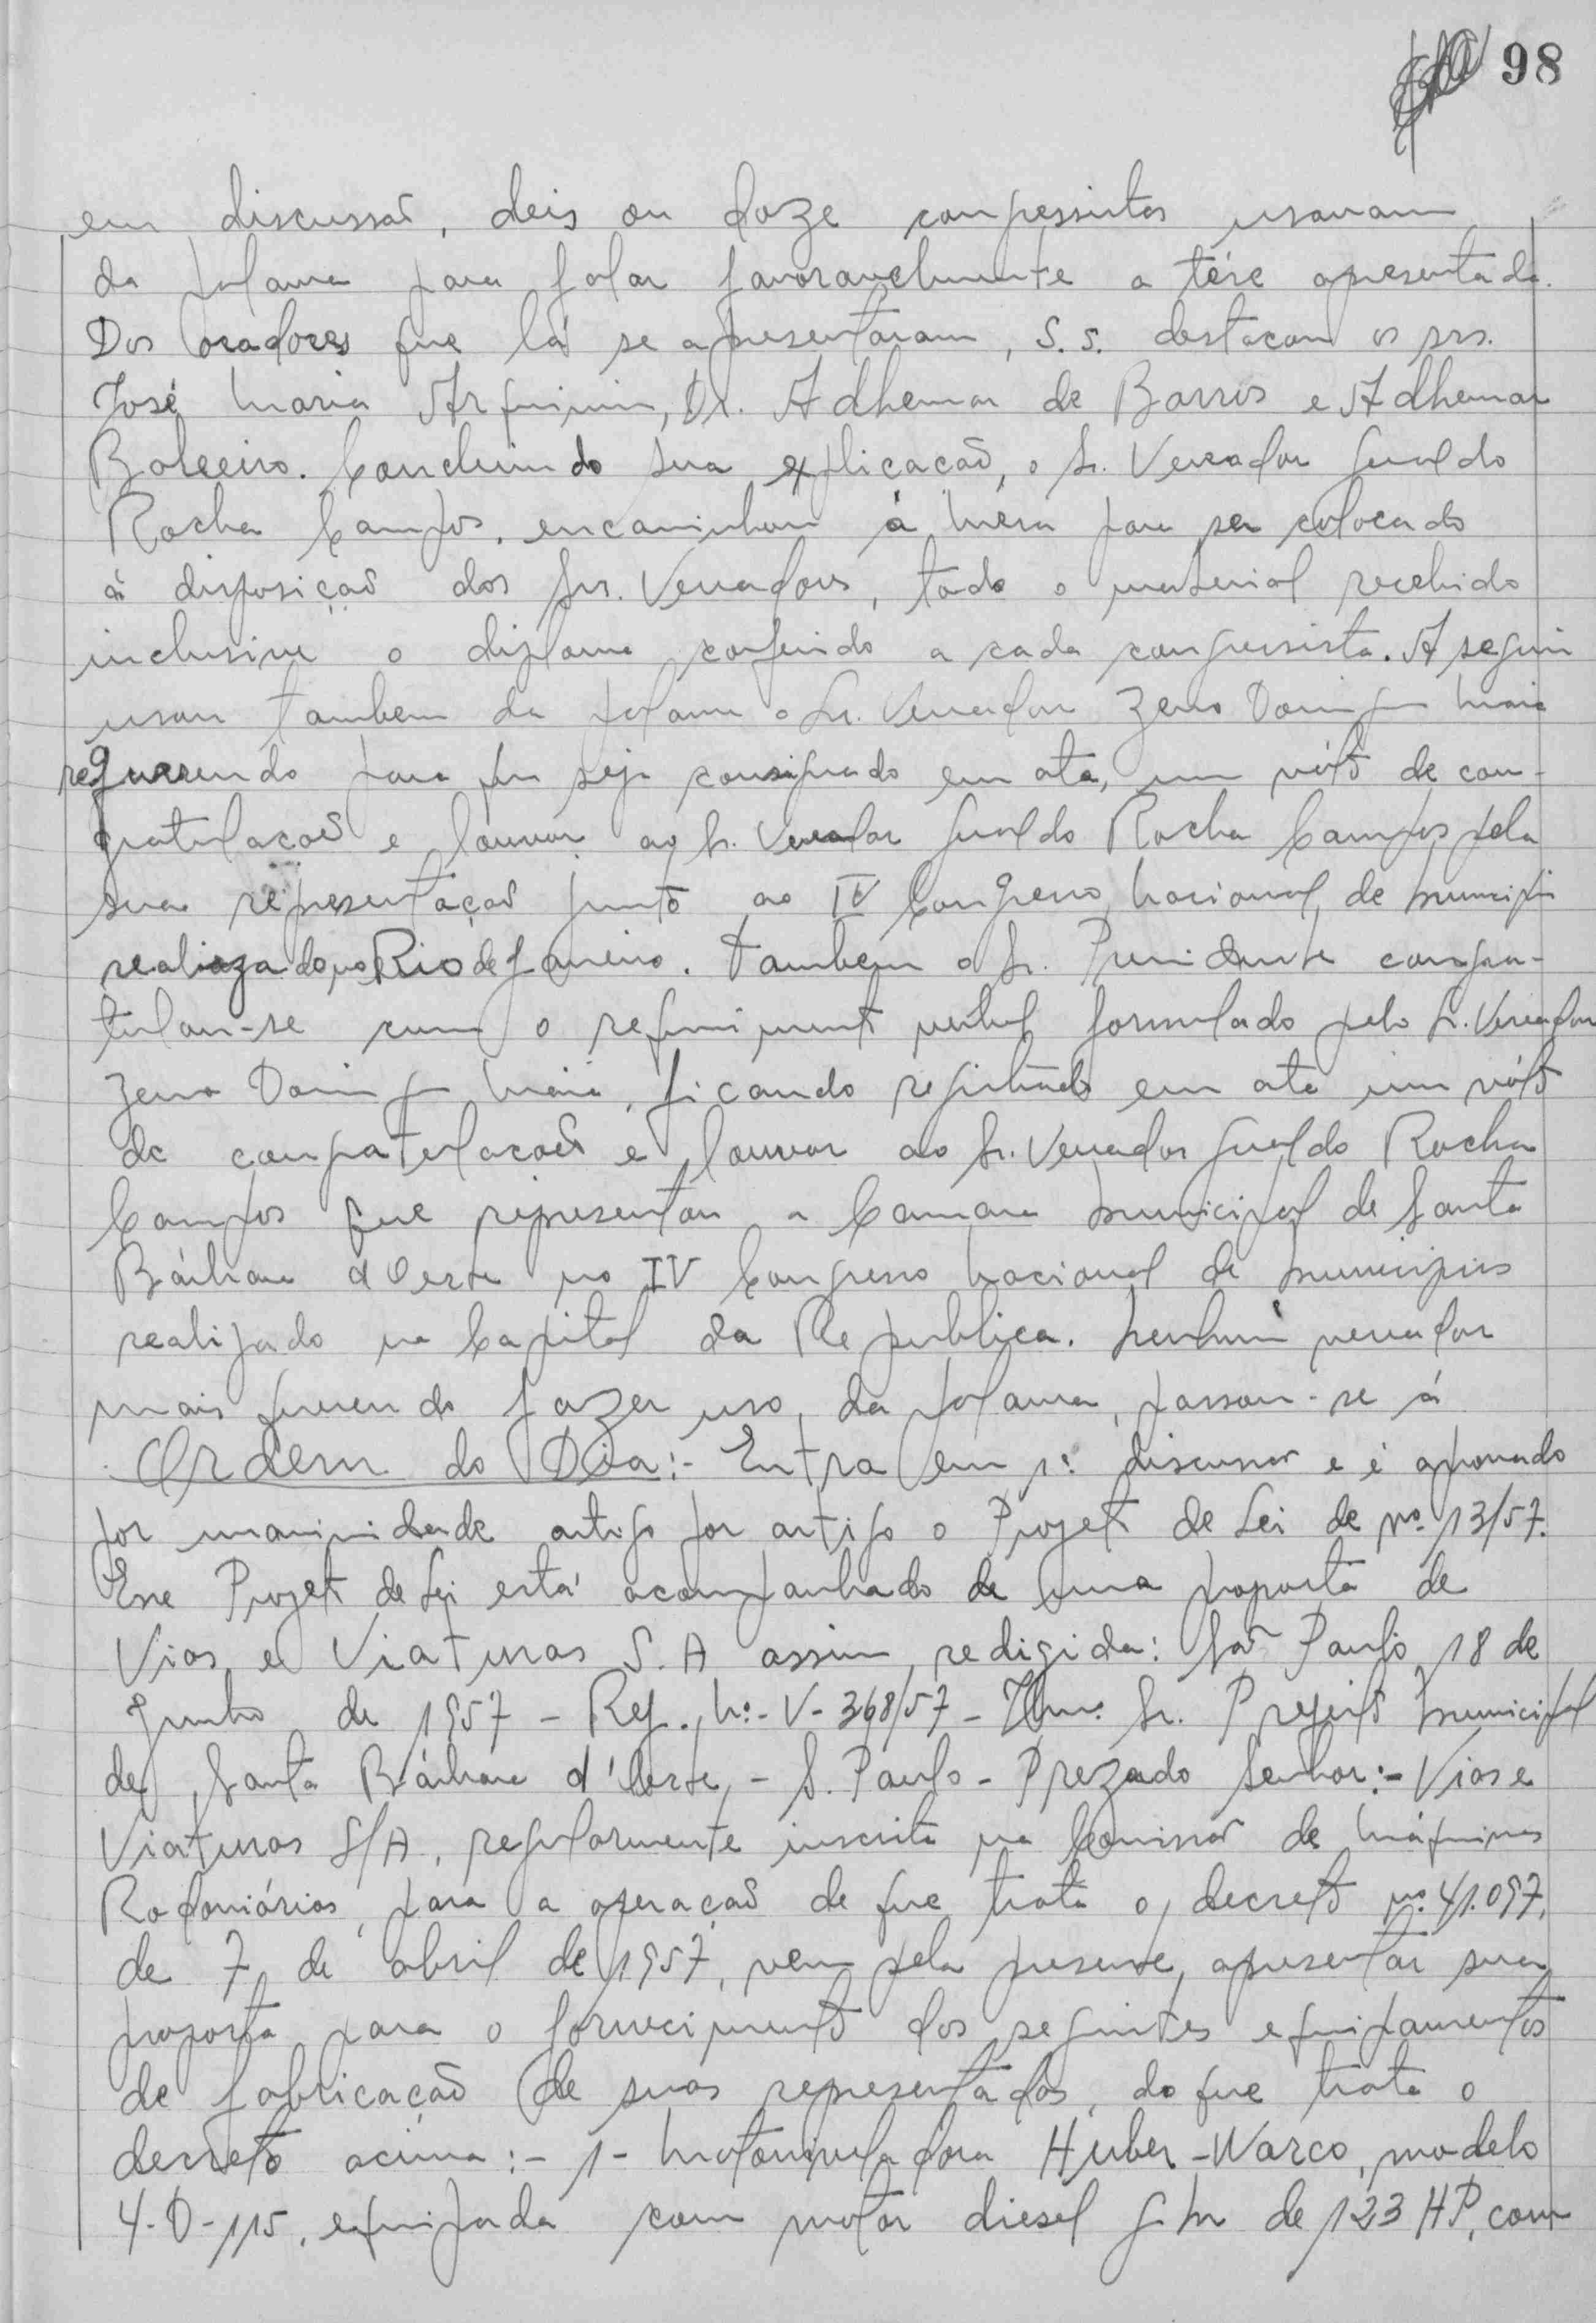 98
em discussaõ, deis ou doze congressistas usaram
da palavra para falar favoravelmente a tése apresentada.
Dos oradores que lá se apresentaram, S.S. destacou os srs.
José Maria Alquimin, Dr. Adhemar de Barros e Adhemar
Baleeiro. Concluindo sua explicacaõ, o Sr. Vereador Gualdo
Rocha Campos, encaminhou á Mesa para ser colocado
á disposiçaõ dos Srs. Vereadores, todo o material recebido
inclusive o diploma conferido a cada congressista. A seguir
usou tambem da palavra o Sr. Vereador Zeno Domingos Maia
requerendo para que seja consignado em ata, um vóto de con-
gratulacoẽs e louvor ao Sr. Vereador Gualdo Rocha Campos pela
sua representaçaõ junto ao IV Congresso Nacional de Municipios
realizado no Rio de Janeiro. Tambem o Sr. Presidente congra-
tulou-se com o requerimento verbal formulado pelo Sr. Vereador
Zeno Domingos Maia, ficando registrado em ata um vóto
de congratulacoẽs e louvor ao Sr. Vereador Gualdo Rocha
Campos que representou a Camara Municipal de Santa
Bárbara d'Oeste no IV Congresso Nacional de Municipios
realizado na Capital da Republica. Nenhum vereador
mais querendo fazer uso da palavra, passou-se á
Ordem do Dia:- Entra em 1ª discussaõ e é aprovado
por unanimidade artigo por artigo o Projeto de Lei de nº 13/57.
Esse Projeto de Lei está acompanhado de uma proposta de
Vias e Viaturas S.A assim redigida: Saõ Paulo 18 de
Junho de 1957 - Ref. Nº - V- 368/57 - Ilmº. Sr. Prefeito Municipal
de Santa Bárbara d'Oeste - S. Paulo - Prezado Senhor:- Vias e
Viaturas S/A, regularmente inscrita na Comissaõ de Máquinas
Rodoviárias, para a operaçaõ de que trata o decreto nº 41.097,
de 7 de abril de 1957, vem pela presente, apresentar sua
proposta para o fornecimento dos seguintes equipamentos
de fabricacaõ de suas representadas, do que trata o
decreto acima:- 1- Motoniveladora Huber-Warco, modelo
4-D-115, equipada com motor diesel G.M de 123 HP, com